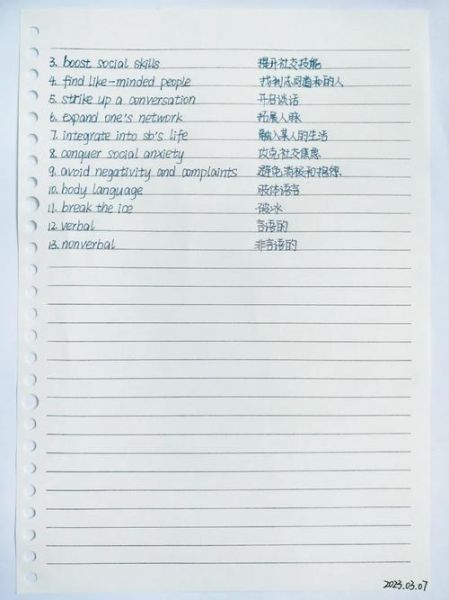 3. boost social skills 提升社交技能
4. find like-minded people 找到志同道和的人
5. strike up a conversation 开启谈话
6. expand one's network 拓展人脉
7. integrate into sb's life 融入某人的生活
8. conquer social anxiety 攻克社交焦虑
9. avoid negativity and complaints 避免消极和抱怨
10. body language 肢体语言
11. break the ice 破冰
12. verbal 言语的
13. nonverbal 非言语的
2023.03.07